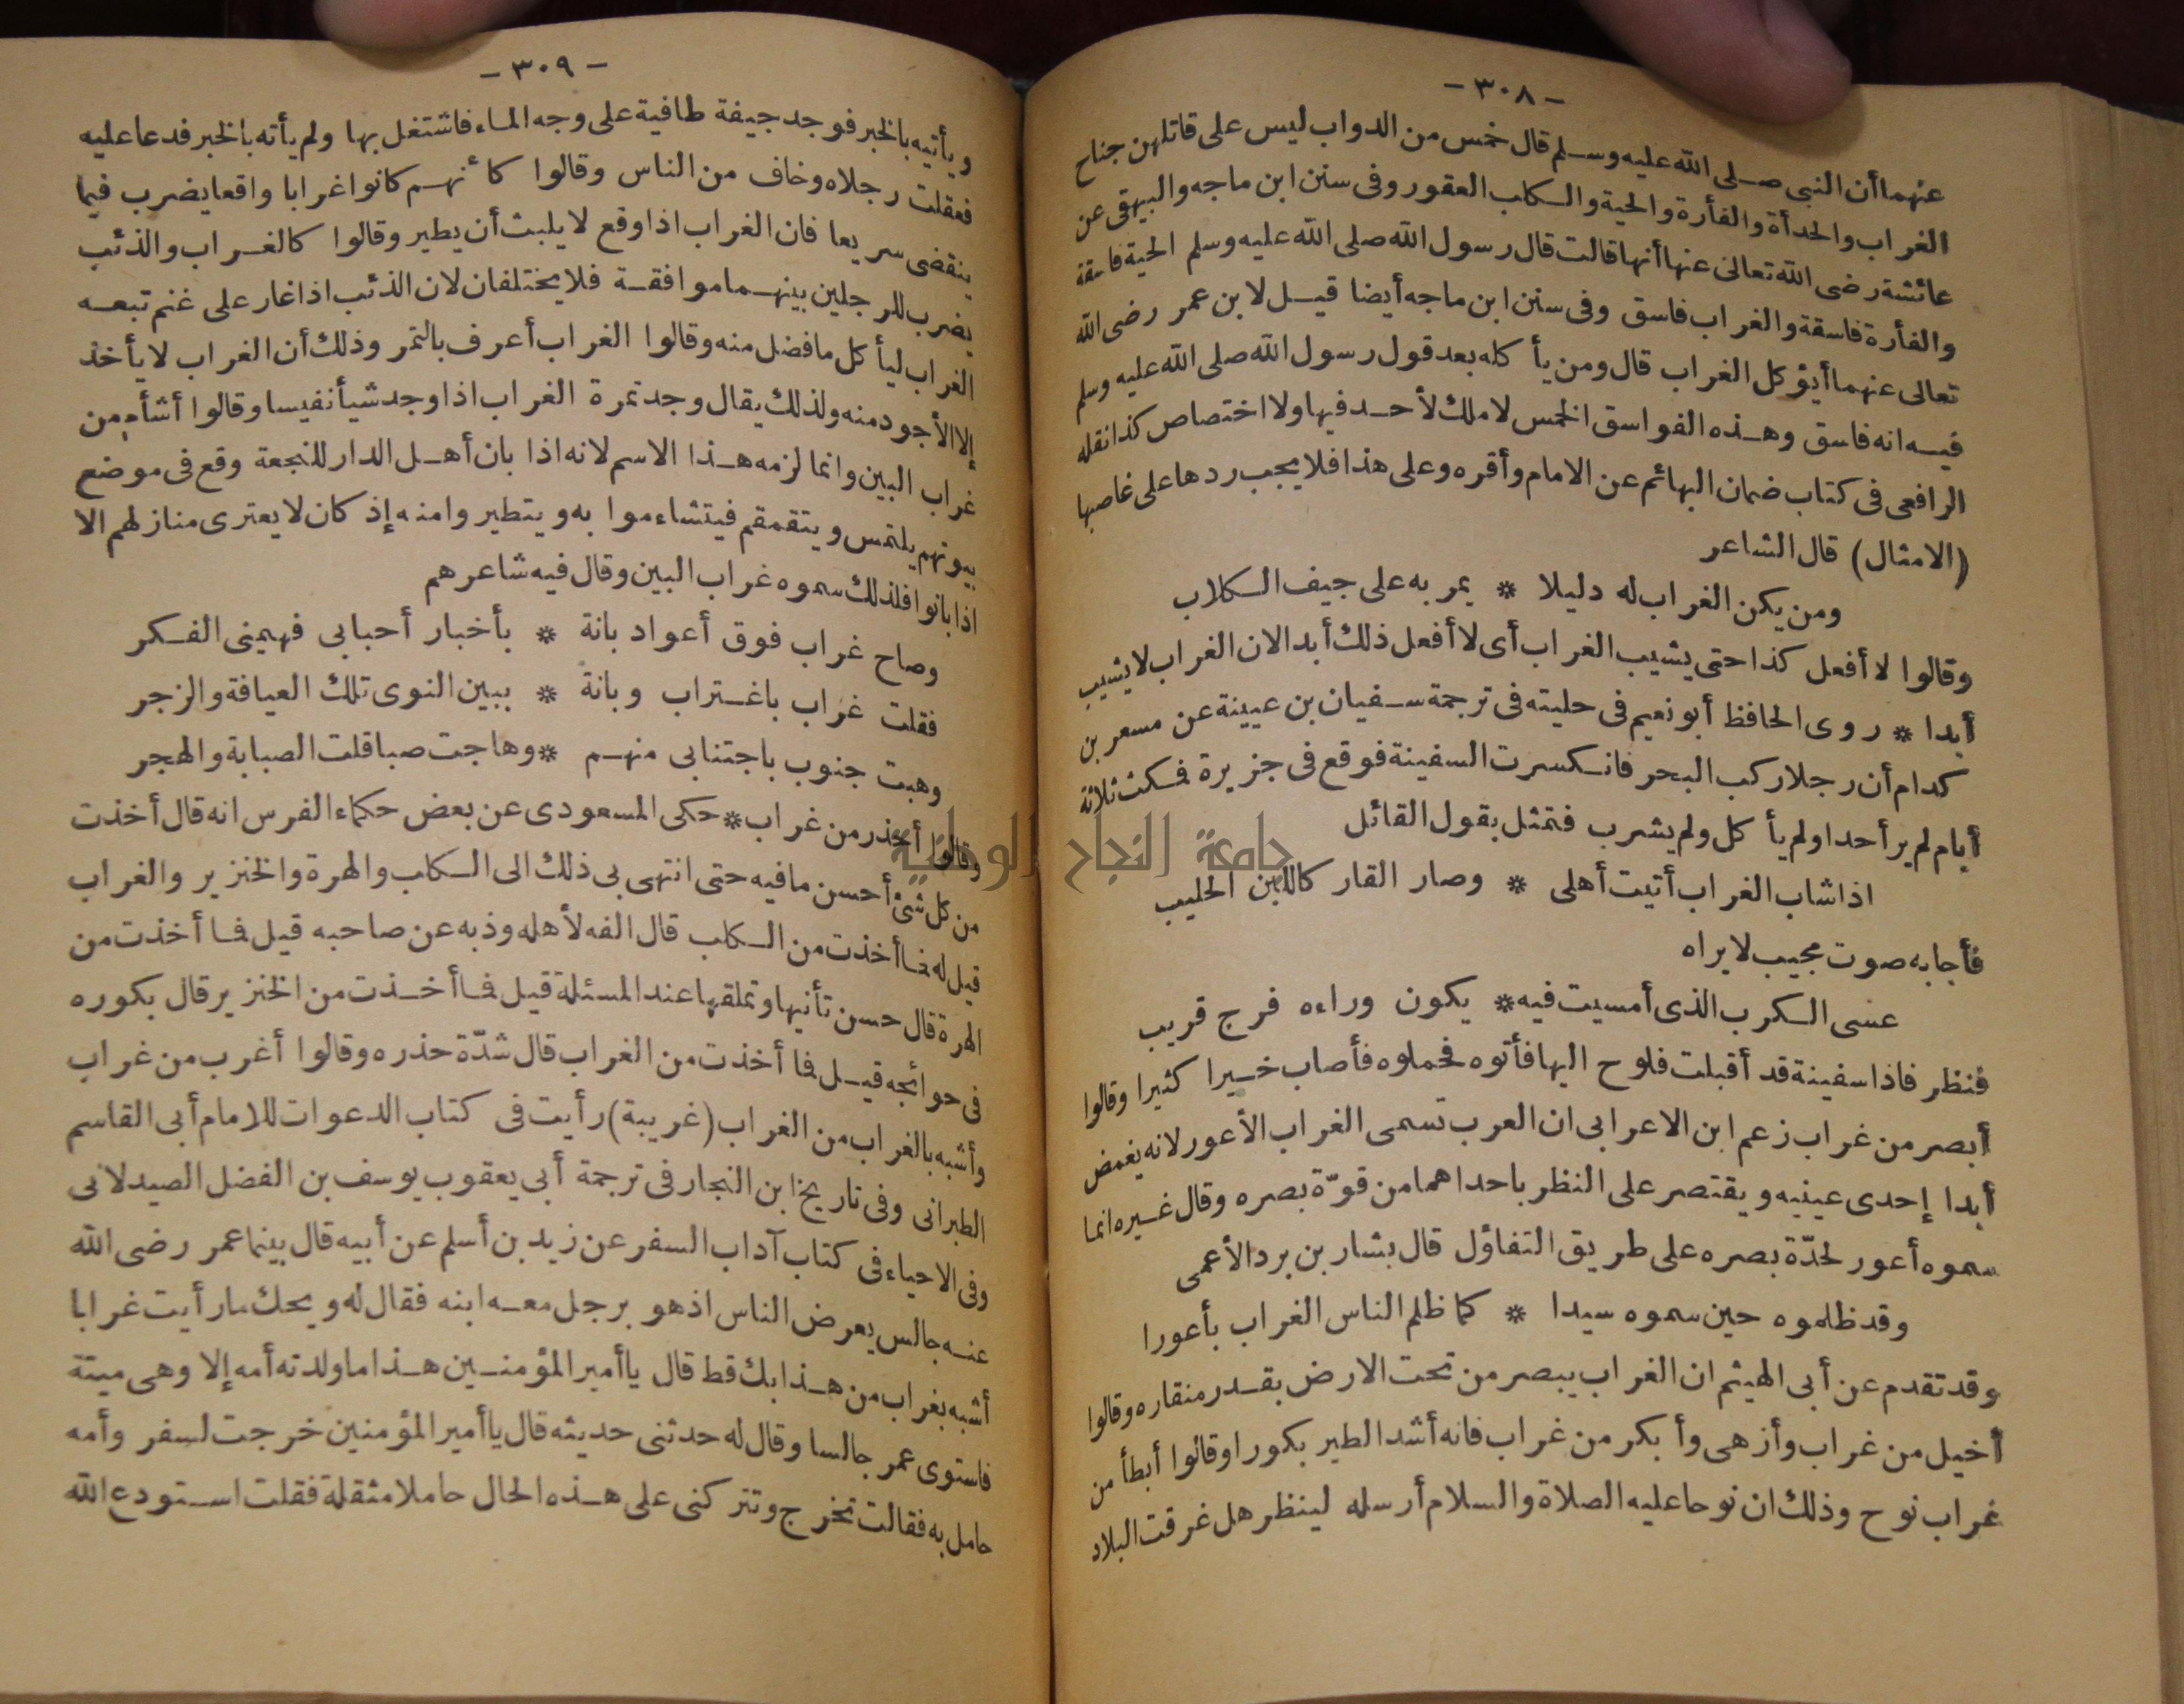 - ٣٠٨ -
عنهما أن النبى صلى الله عليه وسلم قال خمس من الدواب ليس على قاتلهن جناح
الغراب والحدأة والفأرة والحية والكلب العقور وفى سنن ابن ماجه والبيهقى عن
عائشة رضى الله تعالى عنها أنها قالت قال رسول الله صلى الله عليه وسلم الحية فاسقة
والفأرة فاسقة والغراب فاسق وفى سنن ابن ماجه أيضا قيل لابن عمر رضى الله
تعالى عنهما أيؤكل الغراب قال ومن يأكله بعد قول رسول الله صلى الله عليه وسلم
فيه انه فاسق وهذه الفواسق الخمس لا ملك لأحد فيها ولا اختصاص كذا نقله
الرافعى فى كتاب ضمان البهائم عن الامام وأقره وعلى هذا فلا يجب ردها على غاصبها
(الامثال) قال الشاعر
ومن يكن الغراب له دليلا * يمر به على جيف الكلاب
وقالوا لا أفعل كذا حتى يشيب الغراب أى لا أفعل ذلك أبدا لان الغراب لا يشيب
أبدا * روى الحافظ أبو نعيم فى حليته فى ترجمة سفيان بن عيينة عن مسعر بن
كدام أن رجلا ركب البحر فانكسرت السفينة فوقع فى جزيرة فمكث ثلاثة
أيام لم ير أحدا ولم يأكل ولم يشرب فتمثل بقول القائل
اذا شاب الغراب أتيت أهلى * وصار القار كاللبن الحليب
فأجابه صوت مجيب لا يراه
عسى الكرب الذى أمسيت فيه * يكون وراءه فرج قريب
فنظر فاذا سفينة قد أقبلت فلوح اليها فأتوه فحملوه فأصاب خيرا كثيرا وقالوا
أبصر من غراب زعم ابن الاعرابى ان العرب تسمى الغراب الأعور لانه يغمض
أبدا إحدى عينيه ويقتصر على النظر باحداهما من قوّة بصره وقال غيره انما
سموه أعور لحدّة بصره على طريق التفاؤل قال بشار بن برد الأعمى
وقد ظلموه حين سموه سيدا * كما ظلم الناس الغراب بأعورا
وقد تقدم عن أبى الهيثم ان الغراب يبصر من تحت الارض بقدر منقاره وقالوا
أخيل من غراب وأزهى وأبكر من غراب فانه أشد الطير بكورا وقالوا أبطأ من
غراب نوح وذلك ان نوحا عليه الصلاة والسلام أرسله لينظر هل غرقت البلاد
- ٣٠٩ -
ويأتيه بالخبر فوجد جيفة طافية على وجه الماء فاشتغل بها ولم يأته بالخبر فدعا عليه
فعقلت رجلاه وخاف من الناس وقالوا كأنهم كانوا غرابا واقعا يضرب فيما
ينقضى سريعا فان الغراب اذا وقع لا يلبث أن يطير وقالوا كالغراب والذئب
يضرب للرجلين بينهما موافقة فلا يختلفان لان الذئب اذا غار على غنم تبعه
الغراب ليأكل ما فضل منه وقالوا الغراب أعرف بالتمر وذلك أن الغراب لا يأخذ
إلا الأجود منه ولذلك يقال وجد تمرة الغراب اذا وجد شيأ نفيسا وقالوا أشأم من
غراب البين وانما لزمه هذا الاسم لانه اذا بان أهل الدار للنجعة وقع فى موضع
بيوتهم يلتمس ويتقمقم فيتشاءموا به ويتطيروا منه إذ كان لا يعترى منازلهم الا
اذا بانوا فلذلك سموه غراب البين وقال فيه شاعرهم
وصاح غراب فوق أعواد بانة * بأخبار أحبابى فهيمنى الفكر
فقلت غراب باغتراب وبانة * ببين النوى تلك العيافة والزجر
وهبت جنوب باجتنابى منهم * وهاجت صبا قلت الصبابة والهجر
وقالوا أحذر من غراب * حكى المسعودى عن بعض حكماء الفرس انه قال أخذت
من كل شئ أحسن ما فيه حتى انتهى بى ذلك الى الكلب والهرة والخنزير والغراب
قيل له فما أخذت من الكلب قال الفه لأهله وذبه عن صاحبه قيل فما أخذت من
الهرة قال حسن تأنيها وتملقها عند المسئلة قيل فما أخذت من الخنزير قال بكوره
فى حوائجه قيل فما أخذت من الغراب قال شدّة حذره وقالوا أغرب من غراب
وأشبه بالغراب من الغراب (غريبة) رأيت فى كتاب الدعوات للامام أبى القاسم
الطبرانى وفى تاريخ ابن النجار فى ترجمة أبى يعقوب يوسف بن الفضل الصيدلانى
وفى الاحياء فى كتاب آداب السفر عن زيد بن أسلم عن أبيه قال بينما عمر رضى الله
عنه جالس يعرض الناس اذ هو برجل معه ابنه فقال له ويحك ما رأيت غرابا
أشبه بغراب من هذا بك قط قال يا أمير المؤمنين هذا ما ولدته أمه إلا وهى ميتة
فاستوى عمر جالسا وقال له حدثنى حديثه قال يا أمير المؤمنين خرجت لسفر وأمه
حامل به فقالت تخرج وتتركنى على هذه الحال حاملا مثقلة فقلت استودع الله
جامعة النجاح الوطنية